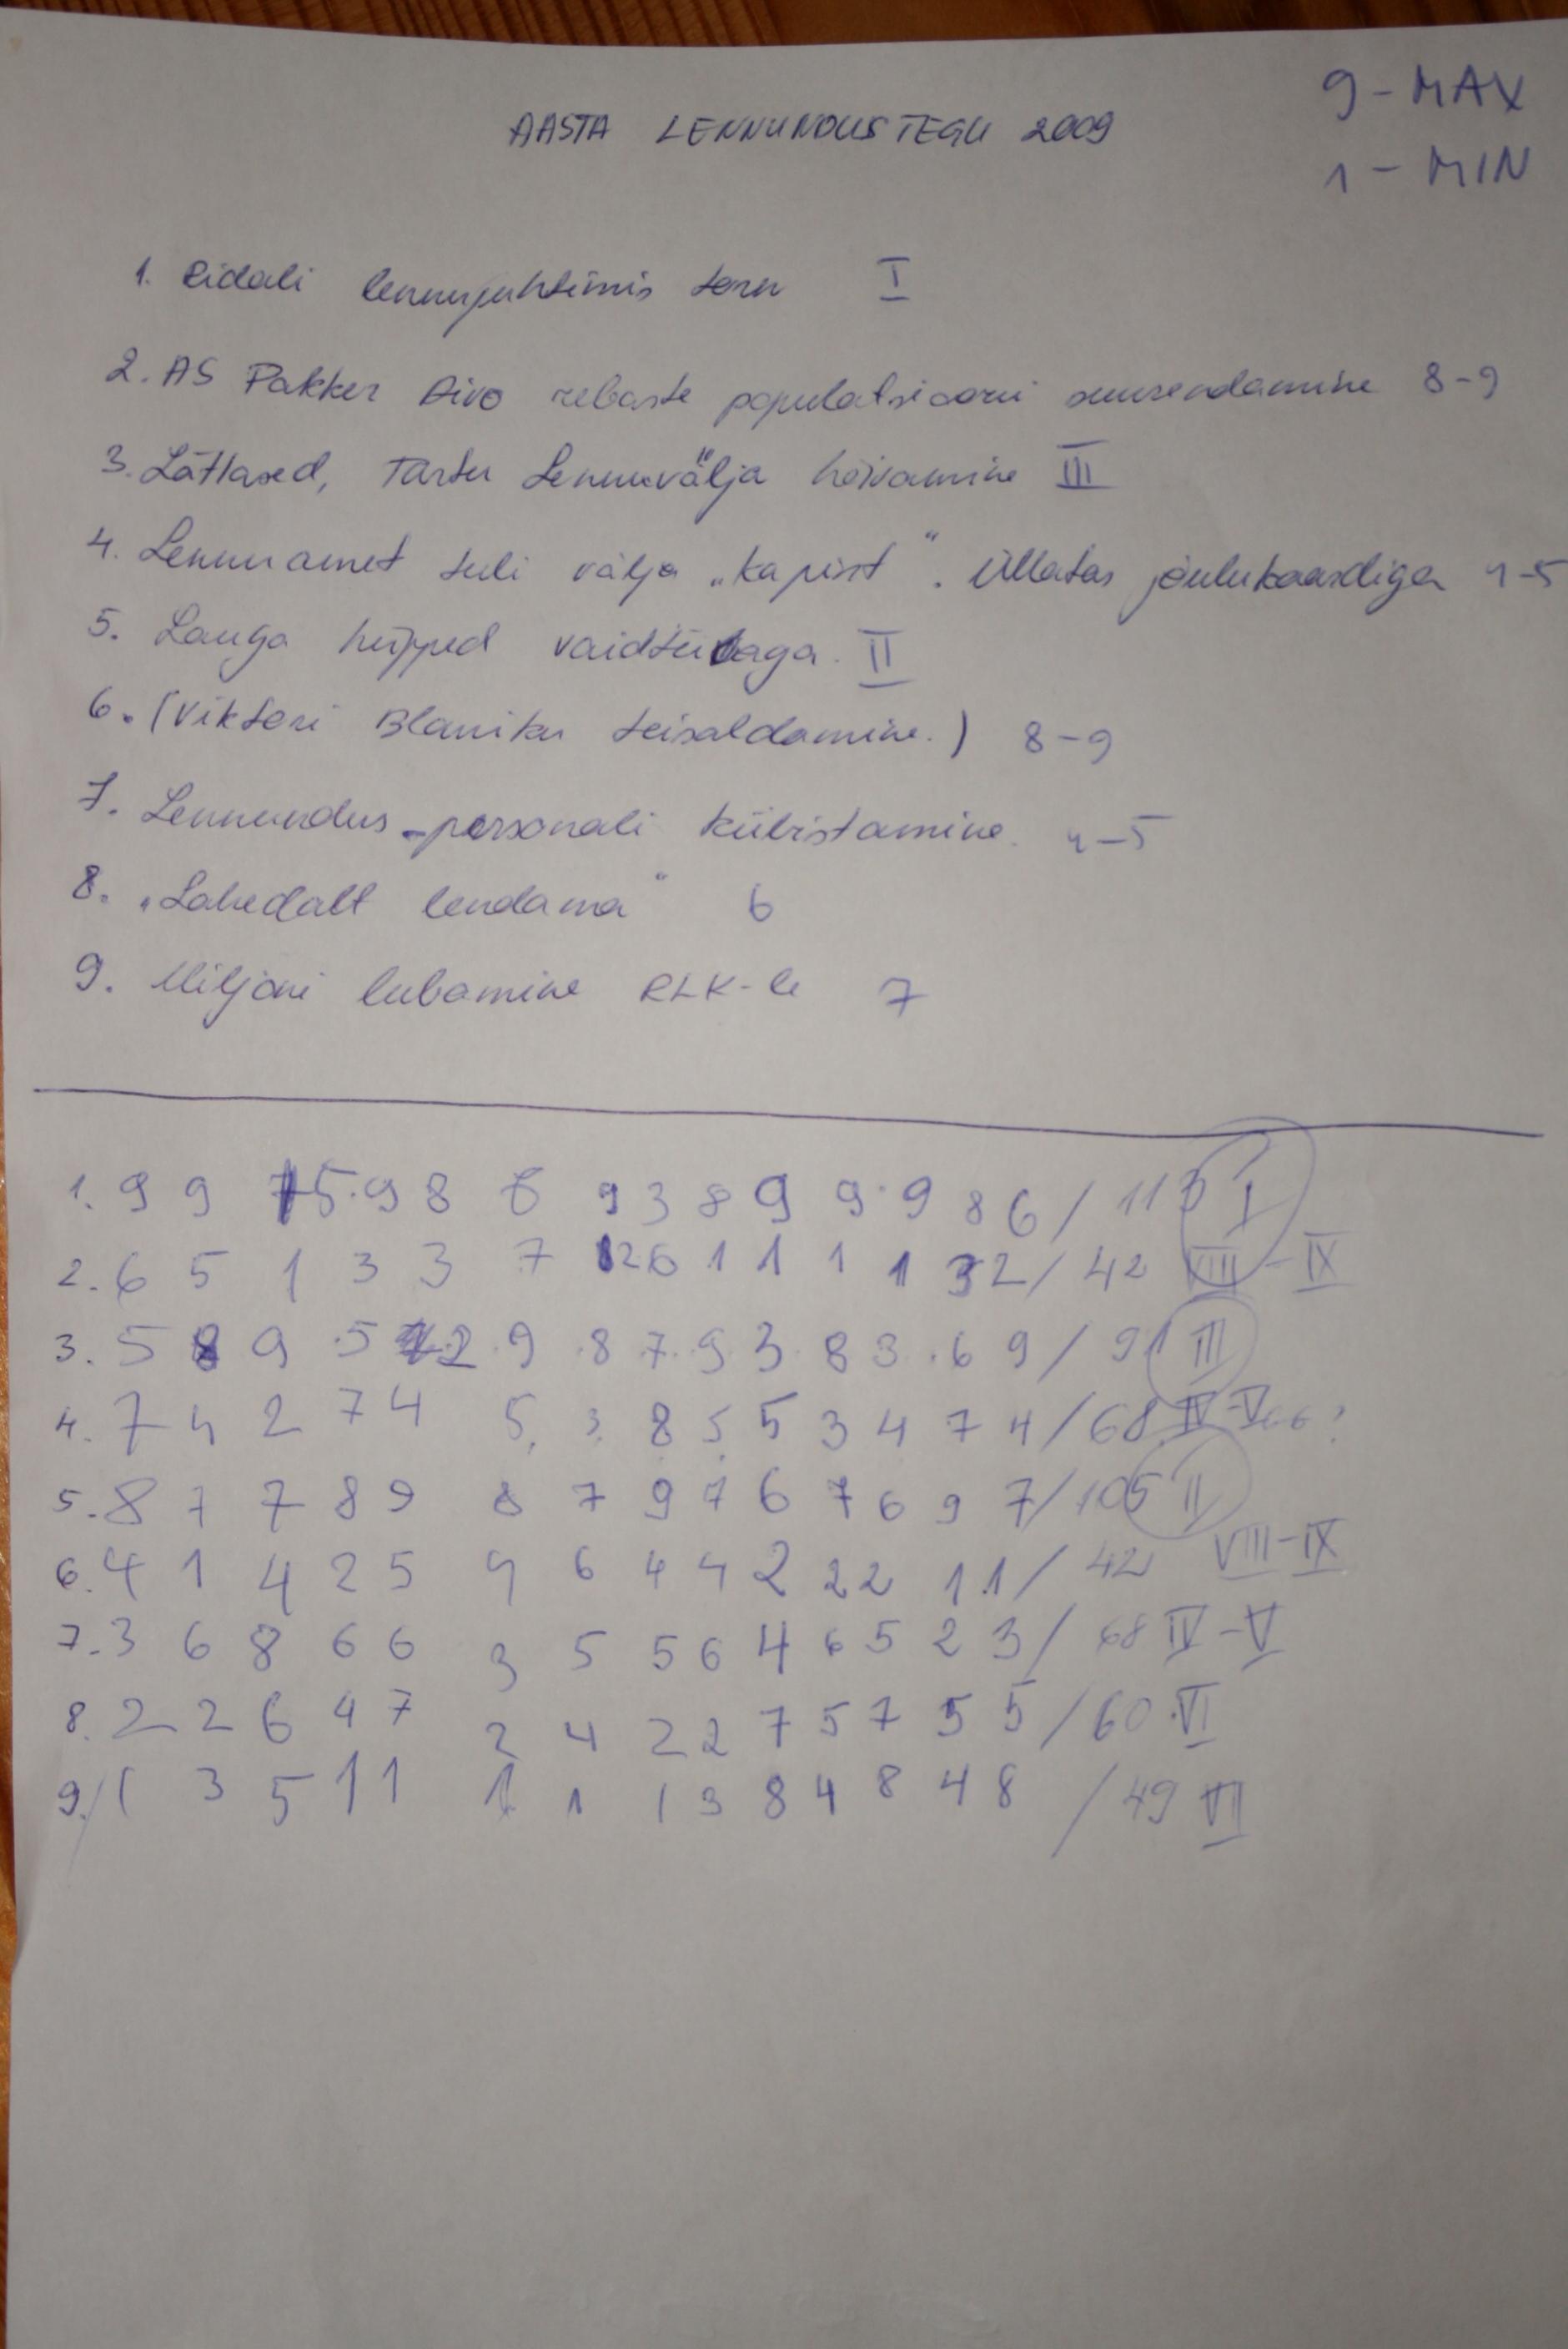 9 - MAX
AASTA LENNUNDUSTEGU 2009
1 - MIN
1. Ridali lennujuhtimis torn I
2. AS Pakker Aivo rebaste populatsiooni suurendamine 8-9
3. Lätlased, Tartu Lennuvälja hõivamine III
4. Lennuamet tuli välja „kapist". Üllatas jõulukaardiga 4-5
5. Lauga hüpped vaidtüdaga. II
6. (Viktori Blaniku teisaldamine.) 8-9
7. Lennundus-personali küüristamine. 4-5
8. „Lahedalt lendama" 6
9. Miljoni lubamine RLK-le 7
1. 9 9 5 9 8 6 9 3 8 9 9 9 8 6 / 113 I
2. 6 5 1 3 3 7 2 6 1 1 1 1 3 2 / 42 VIII - IX
3. 5 8 9 5 2 9 8 7 9 3 8 3 6 9 / 91 III
4. 7 4 2 7 4 5 3 8 5 5 3 4 7 4 / 68 IV-V 66?
5. 8 7 7 8 9 8 7 9 7 6 7 6 9 7 / 105 II
6. 4 1 4 2 5 4 6 4 4 2 2 2 1 1 / 42 VIII-IX
7. 3 6 8 6 6 3 5 5 6 4 6 5 2 3 / 68 IV-V
8. 2 2 6 4 7 2 4 2 2 7 5 7 5 5 / 60 VI
9. 1 3 5 1 1 1 1 1 3 8 4 8 4 8 / 49 VII